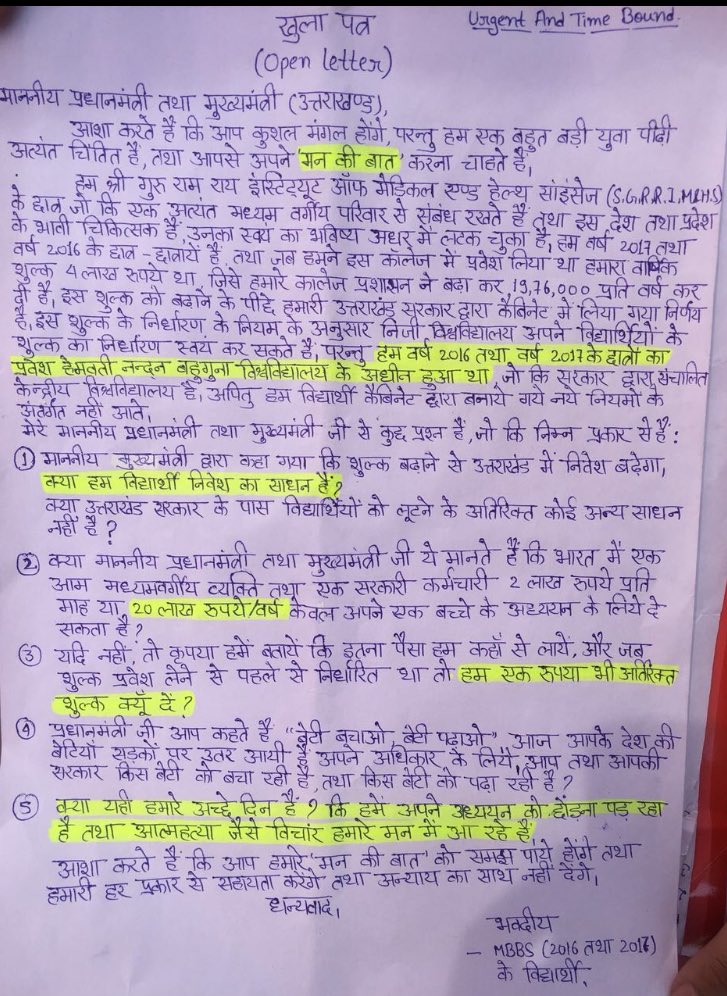 खुला पत्र
Urgent And Time Bound.
(Open letter)
माननीय प्रधानमंत्री तथा मुख्यमंत्री (उत्तराखण्ड),
आशा करते हैं कि आप कुशल मंगल होंगे, परन्तु हम एक बहुत बड़ी युवा पीढ़ी
अत्यंत चिंतित हैं, तथा आपसे अपने 'मन की बात' करना चाहते हैं,
हम श्री गुरु राम राय इंस्टिट्यूट ऑफ मेडिकल एण्ड हेल्थ साइंसेज (S.G.R.R.I.M.&H.S)
के छात्र जो कि एक अत्यंत मध्यम वर्गीय परिवार से संबंध रखते हैं तथा इस देश तथा प्रदेश
के भावी चिकित्सक हैं, उनका स्वयं का भविष्य अधर में लटक चुका है, हम वर्ष 2017 तथा
वर्ष 2016 के छात्र - छात्रायें हैं, तथा जब हमने इस कालेज में प्रवेश लिया था हमारा वार्षिक
शुल्क 4 लाख रुपये था, जिसे हमारे कालेज प्रशासन ने बढ़ा कर 19,76,000 प्रति वर्ष कर
दी है, इस शुल्क को बढ़ाने के पीछे हमारी उत्तराखंड सरकार द्वारा कैबिनेट में लिया गया निर्णय
है, इस शुल्क के निर्धारण के नियम के अनुसार निजी विश्वविद्यालय अपने विद्यार्थियों के
शुल्क का निर्धारण स्वयं कर सकते हैं, परन्तु हम वर्ष 2016 तथा वर्ष 2017 के छात्रों का
प्रवेश हेमवती नन्दन बहुगुना विश्वविद्यालय के अधीन हुआ था, जो कि सरकार द्वारा संचालित
केन्द्रीय विश्वविद्यालय है, अपितु हम विद्यार्थी कैबिनेट द्वारा बनाये गये नये नियमों के
अंतर्गत नहीं आते,
मेरे माननीय प्रधानमंत्री तथा मुख्यमंत्री जी से कुछ प्रश्न हैं, जो कि निम्न प्रकार से हैं :
① माननीय मुख्यमंत्री द्वारा कहा गया कि शुल्क बढ़ाने से उत्तराखंड में निवेश बढ़ेगा,
क्या हम विद्यार्थी निवेश का साधन हैं?
क्या उत्तराखंड सरकार के पास विद्यार्थियों को लूटने के अतिरिक्त कोई अन्य साधन
नहीं है ?
② क्या माननीय प्रधानमंत्री तथा मुख्यमंत्री जी ये मानते हैं कि भारत में एक
आम मध्यमवर्गीय व्यक्ति तथा एक सरकारी कर्मचारी 2 लाख रुपये प्रति
माह या 20 लाख रुपये/वर्ष केवल अपने एक बच्चे के अध्ययन के लिये दे
सकता है ?
③ यदि नहीं, तो कृपया हमें बतायें कि इतना पैसा हम कहाँ से लायें, और जब
शुल्क प्रवेश लेने से पहले से निर्धारित था तो हम एक रुपया भी अतिरिक्त
शुल्क क्यूँ दें ?
④ प्रधानमंत्री जी आप कहते हैं "बेटी बचाओ, बेटी पढ़ाओ" आज आपके देश की
बेटियाँ सड़कों पर उतर आयी हैं अपने अधिकार के लिये, आप तथा आपकी
सरकार किस बेटी को बचा रही है, तथा किस बेटी को पढ़ा रही है ?
⑤ क्या यही हमारे अच्छे दिन हैं ? कि हमें अपने अध्ययन को छोड़ना पड़ रहा
है तथा आत्महत्या जैसे विचार हमारे मन में आ रहे हैं
आशा करते हैं कि आप हमारे 'मन की बात' को समझ पाये होंगे तथा
हमारी हर प्रकार से सहायता करेंगे तथा अन्याय का साथ नहीं देंगे,
धन्यवाद,
भवदीय
— MBBS (2016 तथा 2017)
के विद्यार्थी,